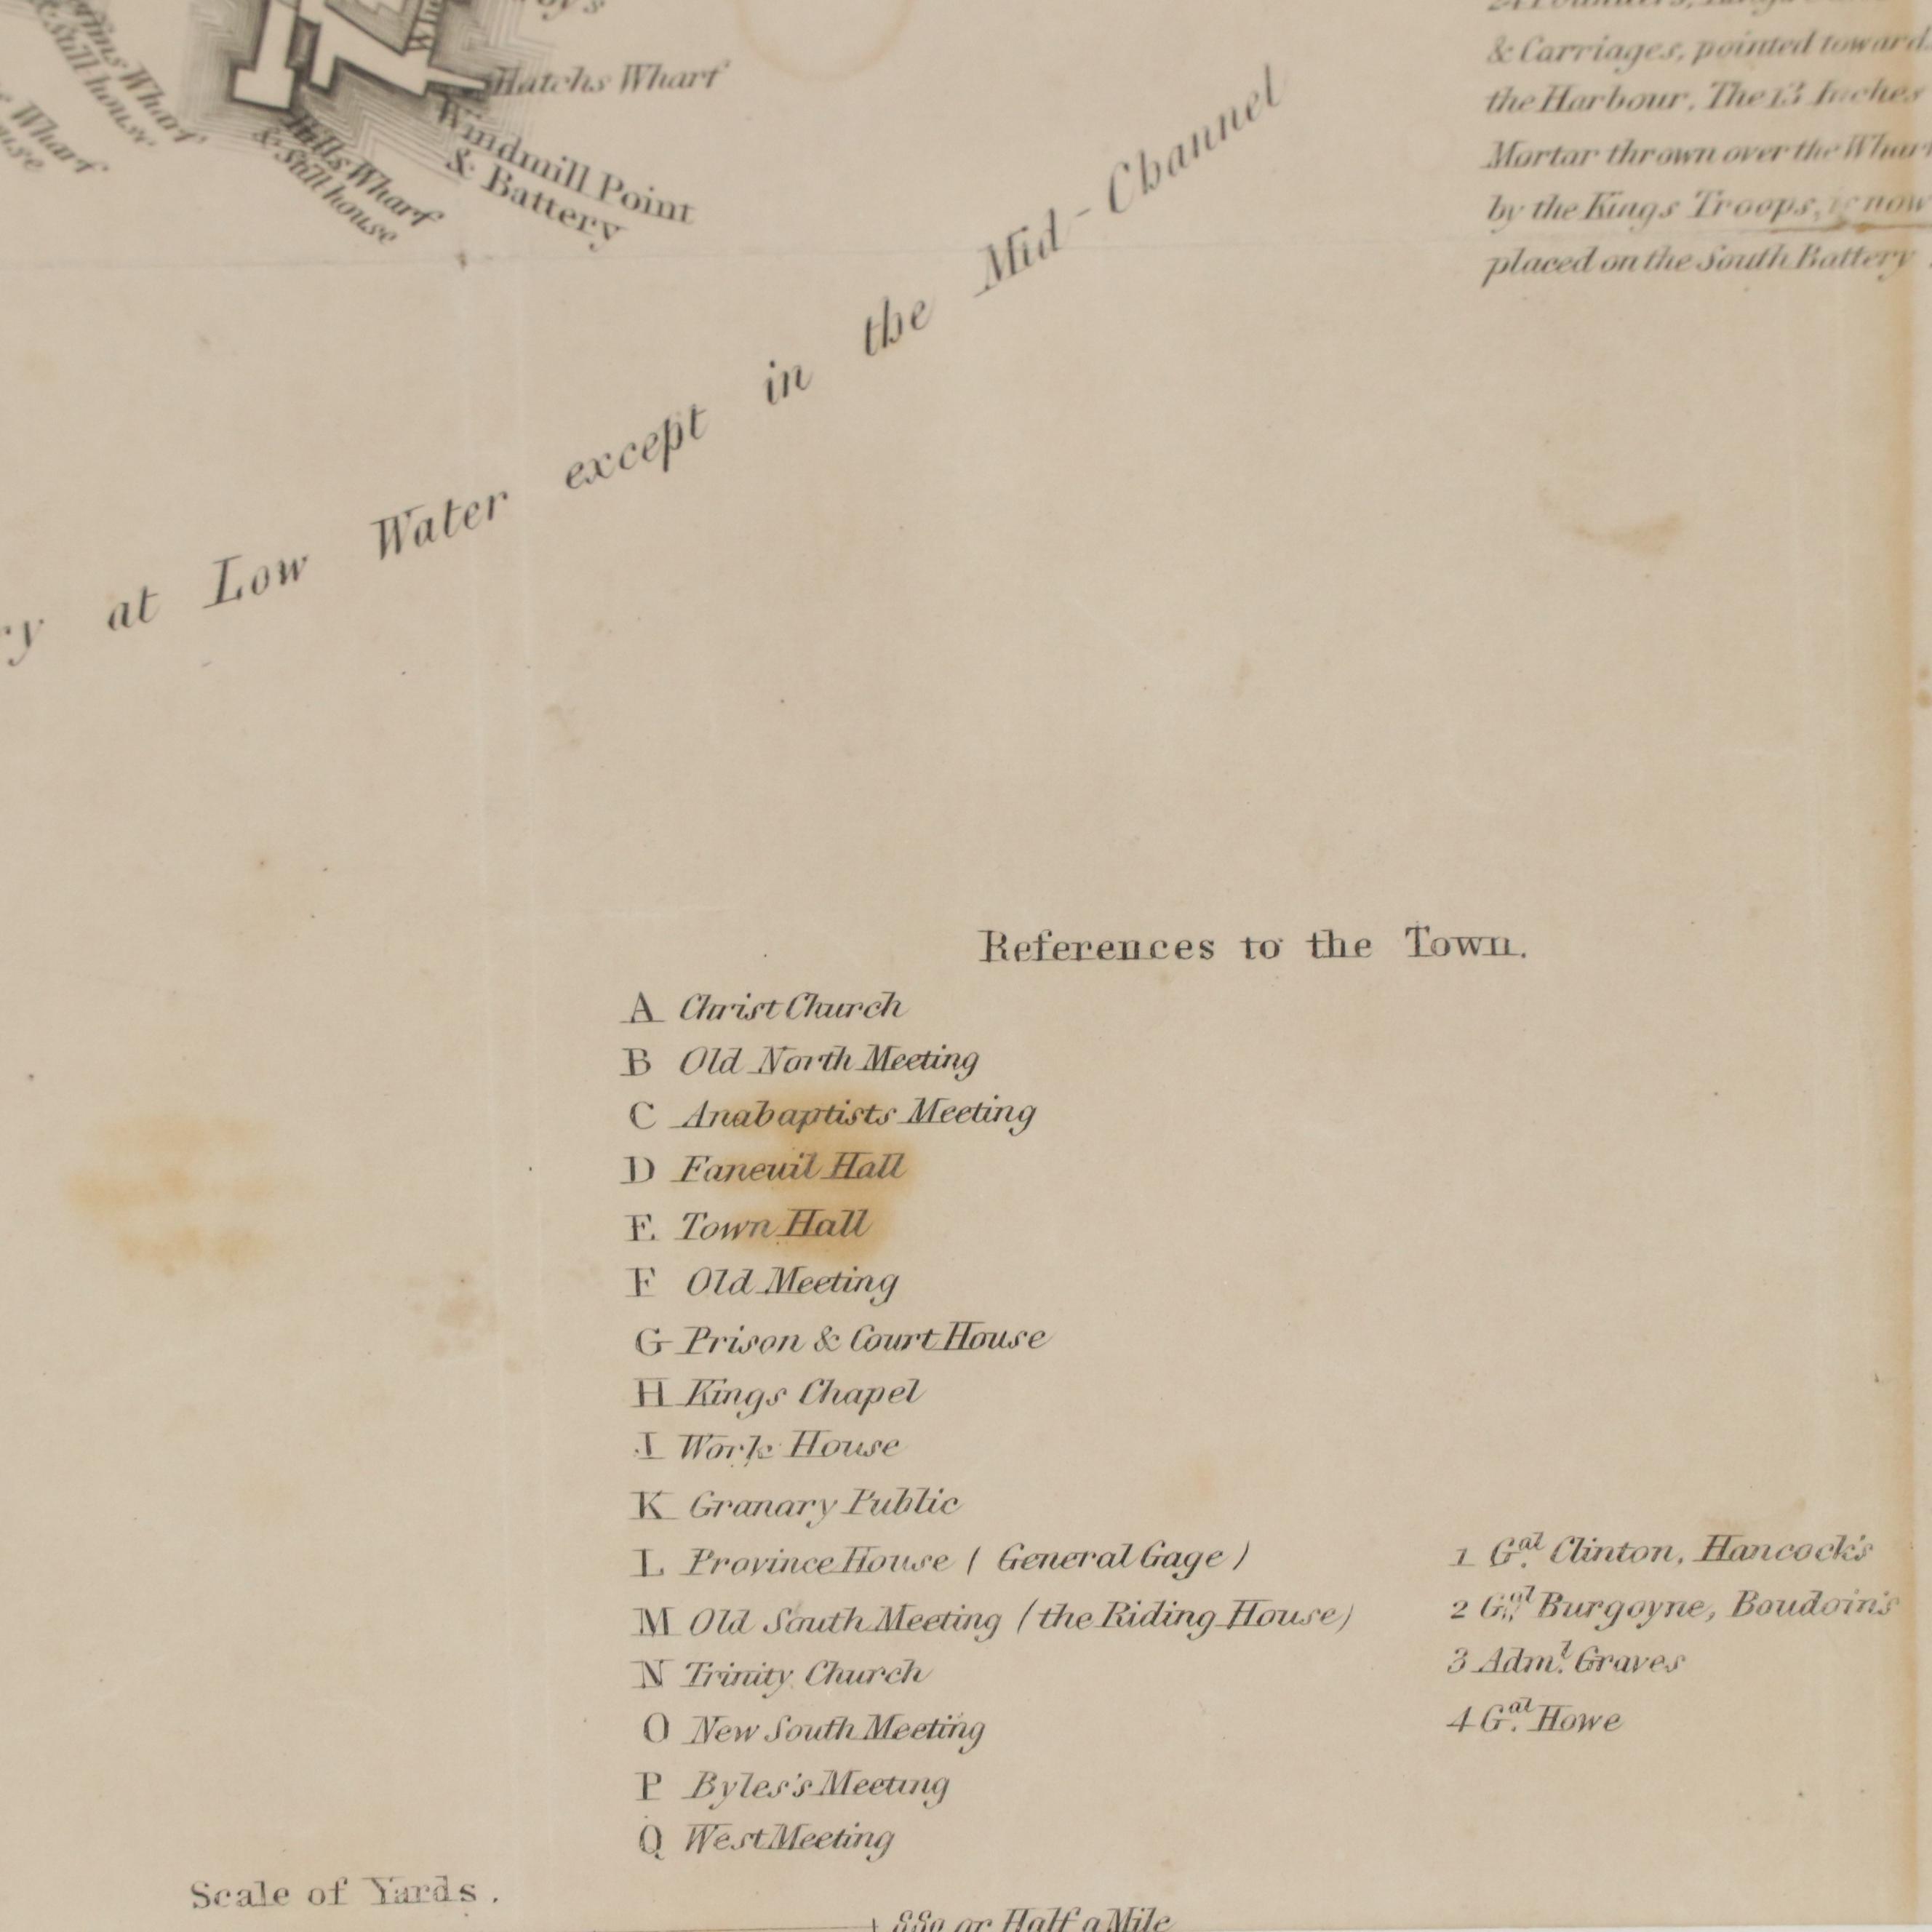 & Still house
Wharf
Wharf
Hatchs Wharf
Windmill Point
& Battery
Hills Wharf
& Still house
at Low Water except in the Mid-Channel
& Carriages, pointed toward
the Harbour. The 13 Inches
Mortar thrown over the Whar
by the Kings Troops, is now
placed on the South Battery
References to the Town.
A Christ Church
B Old North Meeting
C Anabaptists Meeting
D Faneuil Hall
E Town Hall
F Old Meeting
G Prison & Court House
H Kings Chapel
I Work House
K Granary Public
L Province House ( General Gage )
M Old South Meeting (the Riding House)
N Trinity Church
O New South Meeting
P Byles's Meeting
Q West Meeting
1 Gal. Clinton, Hancock's
2 Gal. Burgoyne, Boudoin's
3 Adml. Graves
4 Gal. Howe
Scale of Yards.
880 or Half a Mile